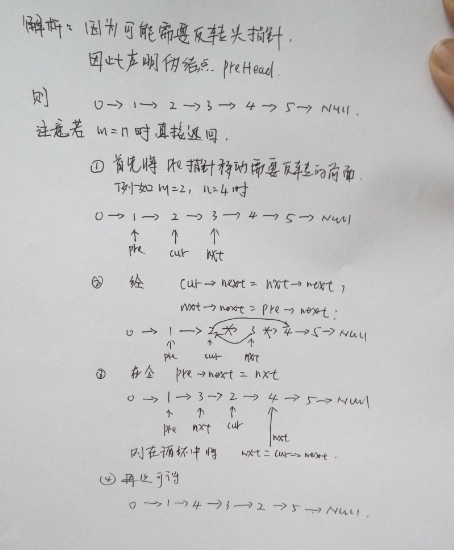 解析：因为可能需要反转头指针，
因此声明伪结点 preHead.
则 0 → 1 → 2 → 3 → 4 → 5 → Null.
注意若 m = n 时直接返回.
① 首先将 pre 指针移动需要反转的前面.
例如 m=2, n=4 时
0 → 1 → 2 → 3 → 4 → 5 → Null
↑ ↑ ↑
pre cur nxt
② 经 cur → next = nxt → next;
nxt → next = pre → next;
0 → 1 → 2 → 3 → 4 → 5 → Null
↑ ↑ ↑
pre cur nxt
③ 在令 pre → next = nxt
0 → 1 → 3 → 2 → 4 → 5 → Null
↑ ↑ ↑ ↑
pre nxt cur nxt
则在循环中将 nxt = cur → next.
④ 再次可得
0 → 1 → 4 → 3 → 2 → 5 → Null.